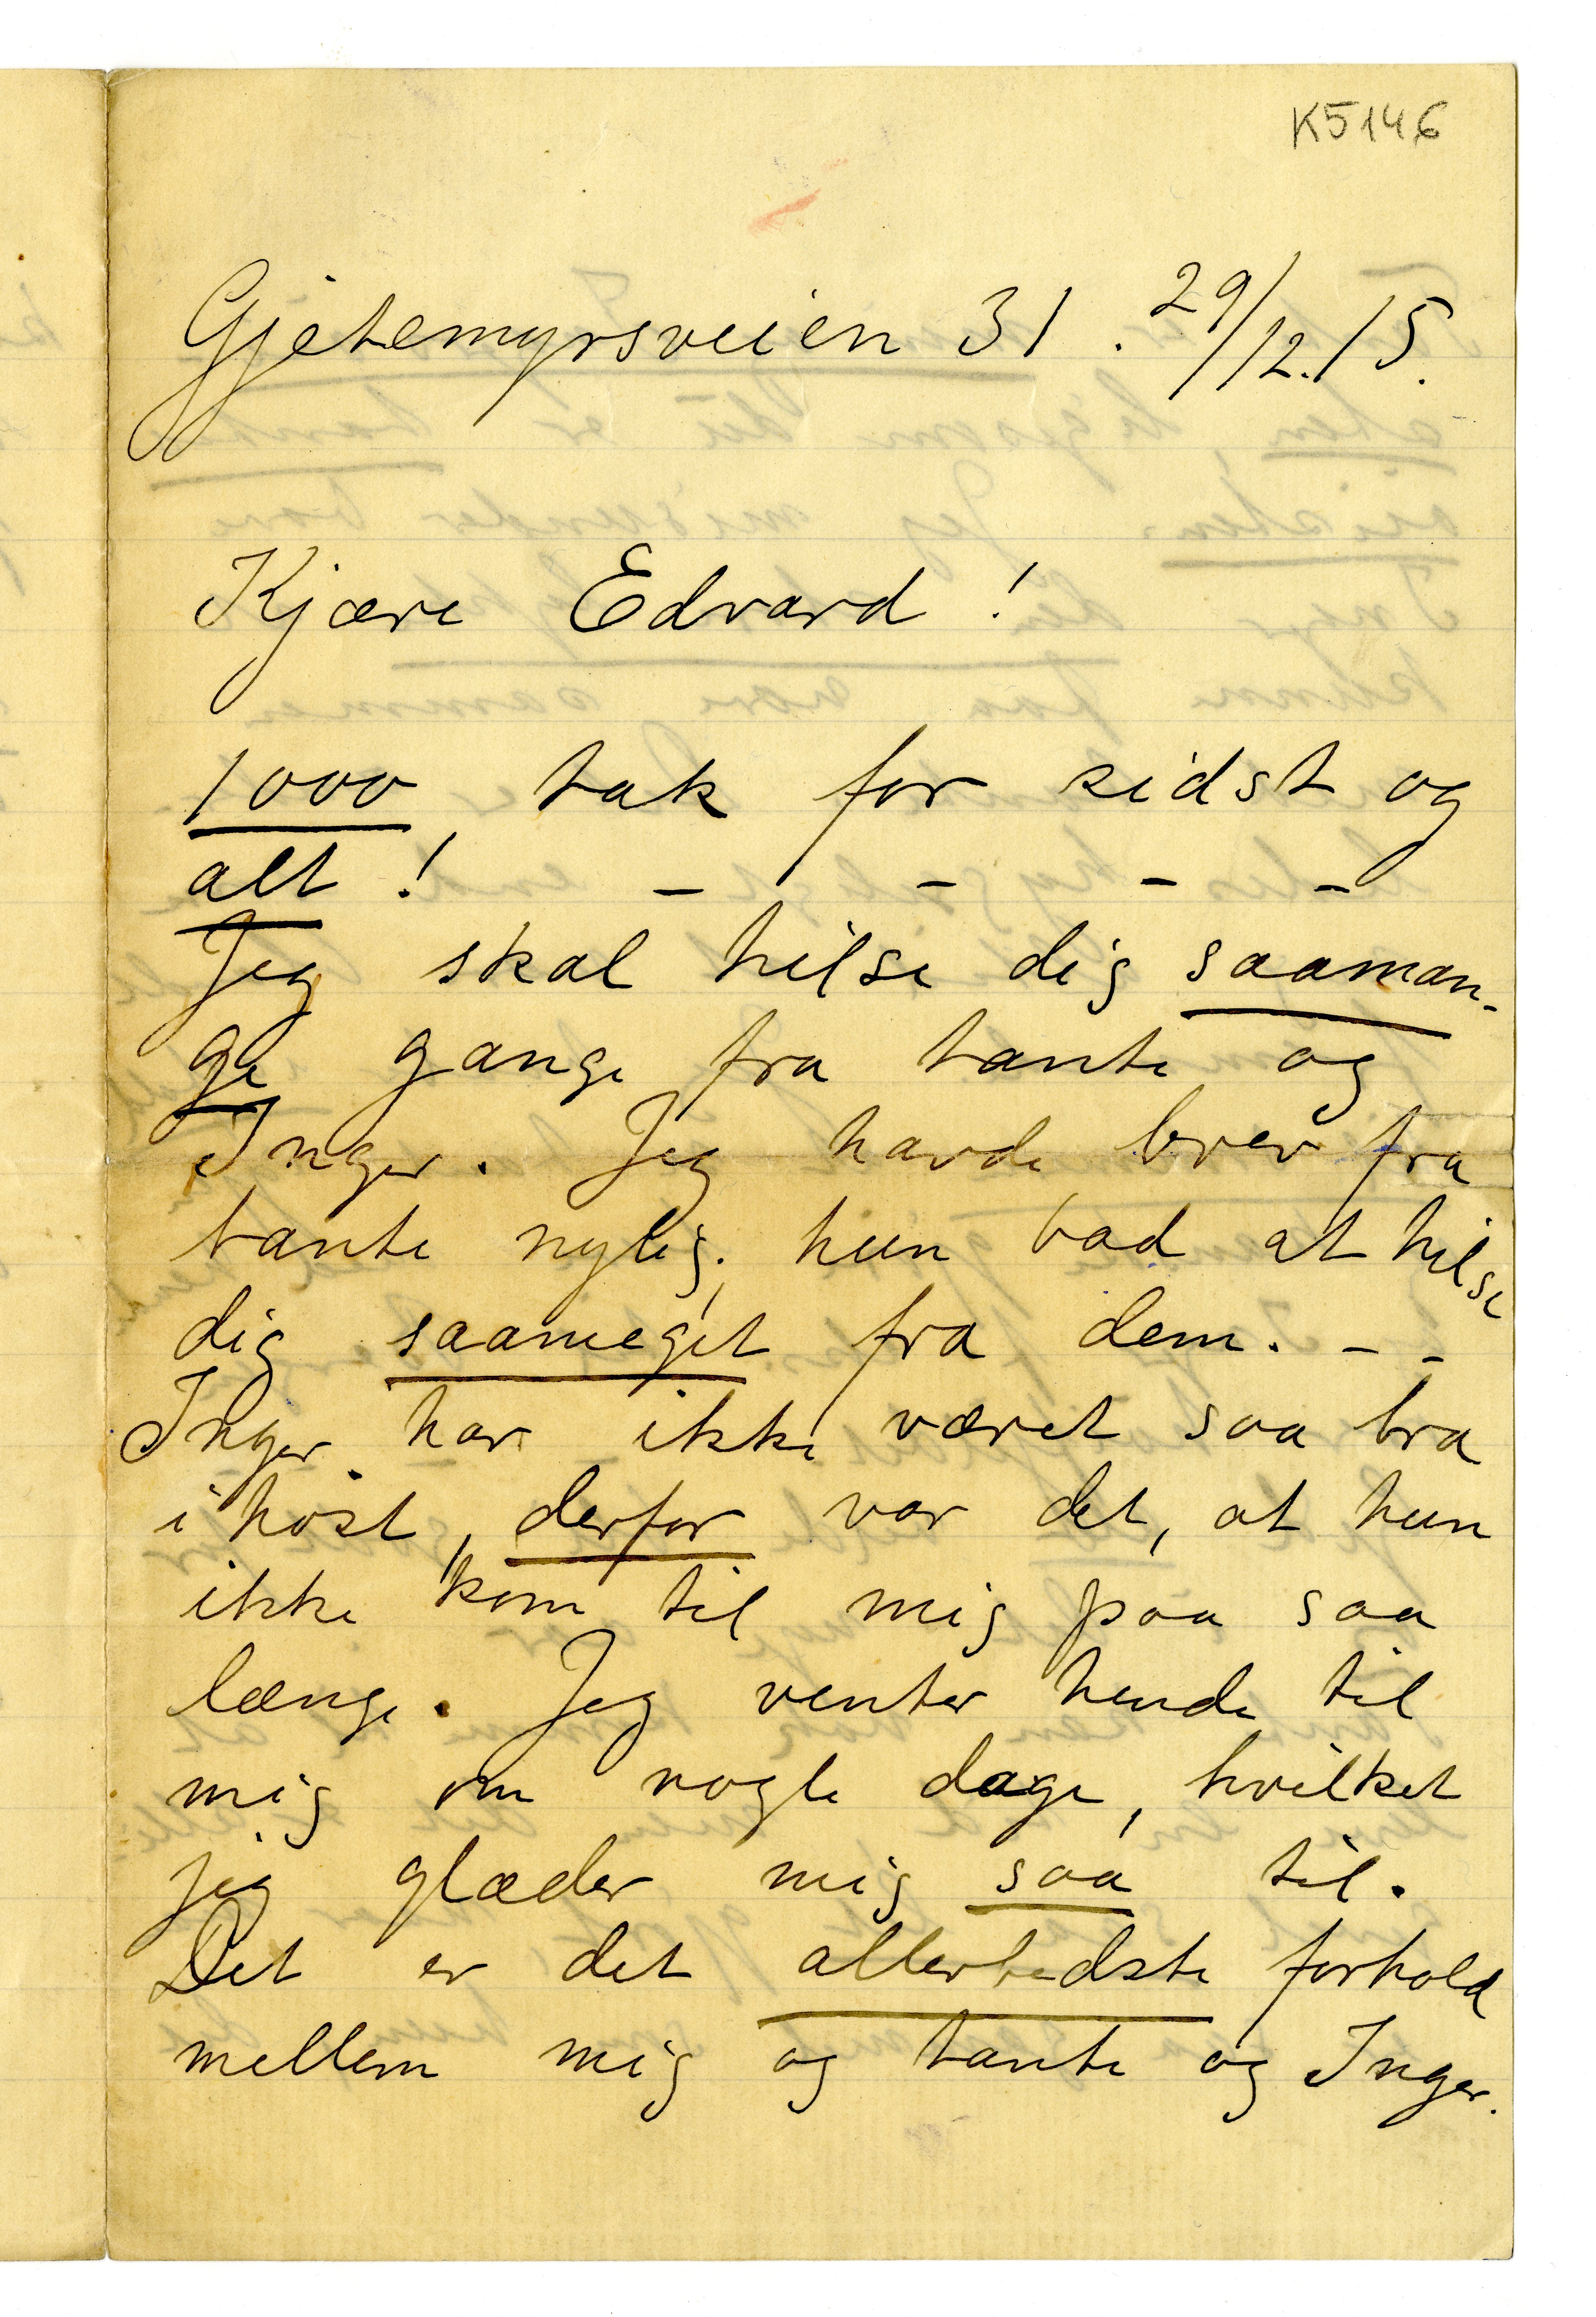 K5146
Gjetemyrsveien 31. 29/12.15.
Kjære Edvard!
1000 tak for sidst og
alt! – – – –
Jeg skal hilse dig saaman-
ge gange fra tante og
Inger. Jeg havde brev fra
tante nylig; hun bad at hilse
dig saameget fra dem. – –
Inger har ikke været saa bra
i høst, derfor var det, at hun
ikke kom til mig paa saa
længe. Jeg venter hende til
mig om nogle dage, hvilket
jeg glæder mig saa til.
Det er det allerbedste forhold
mellem mig og tante og Inger.